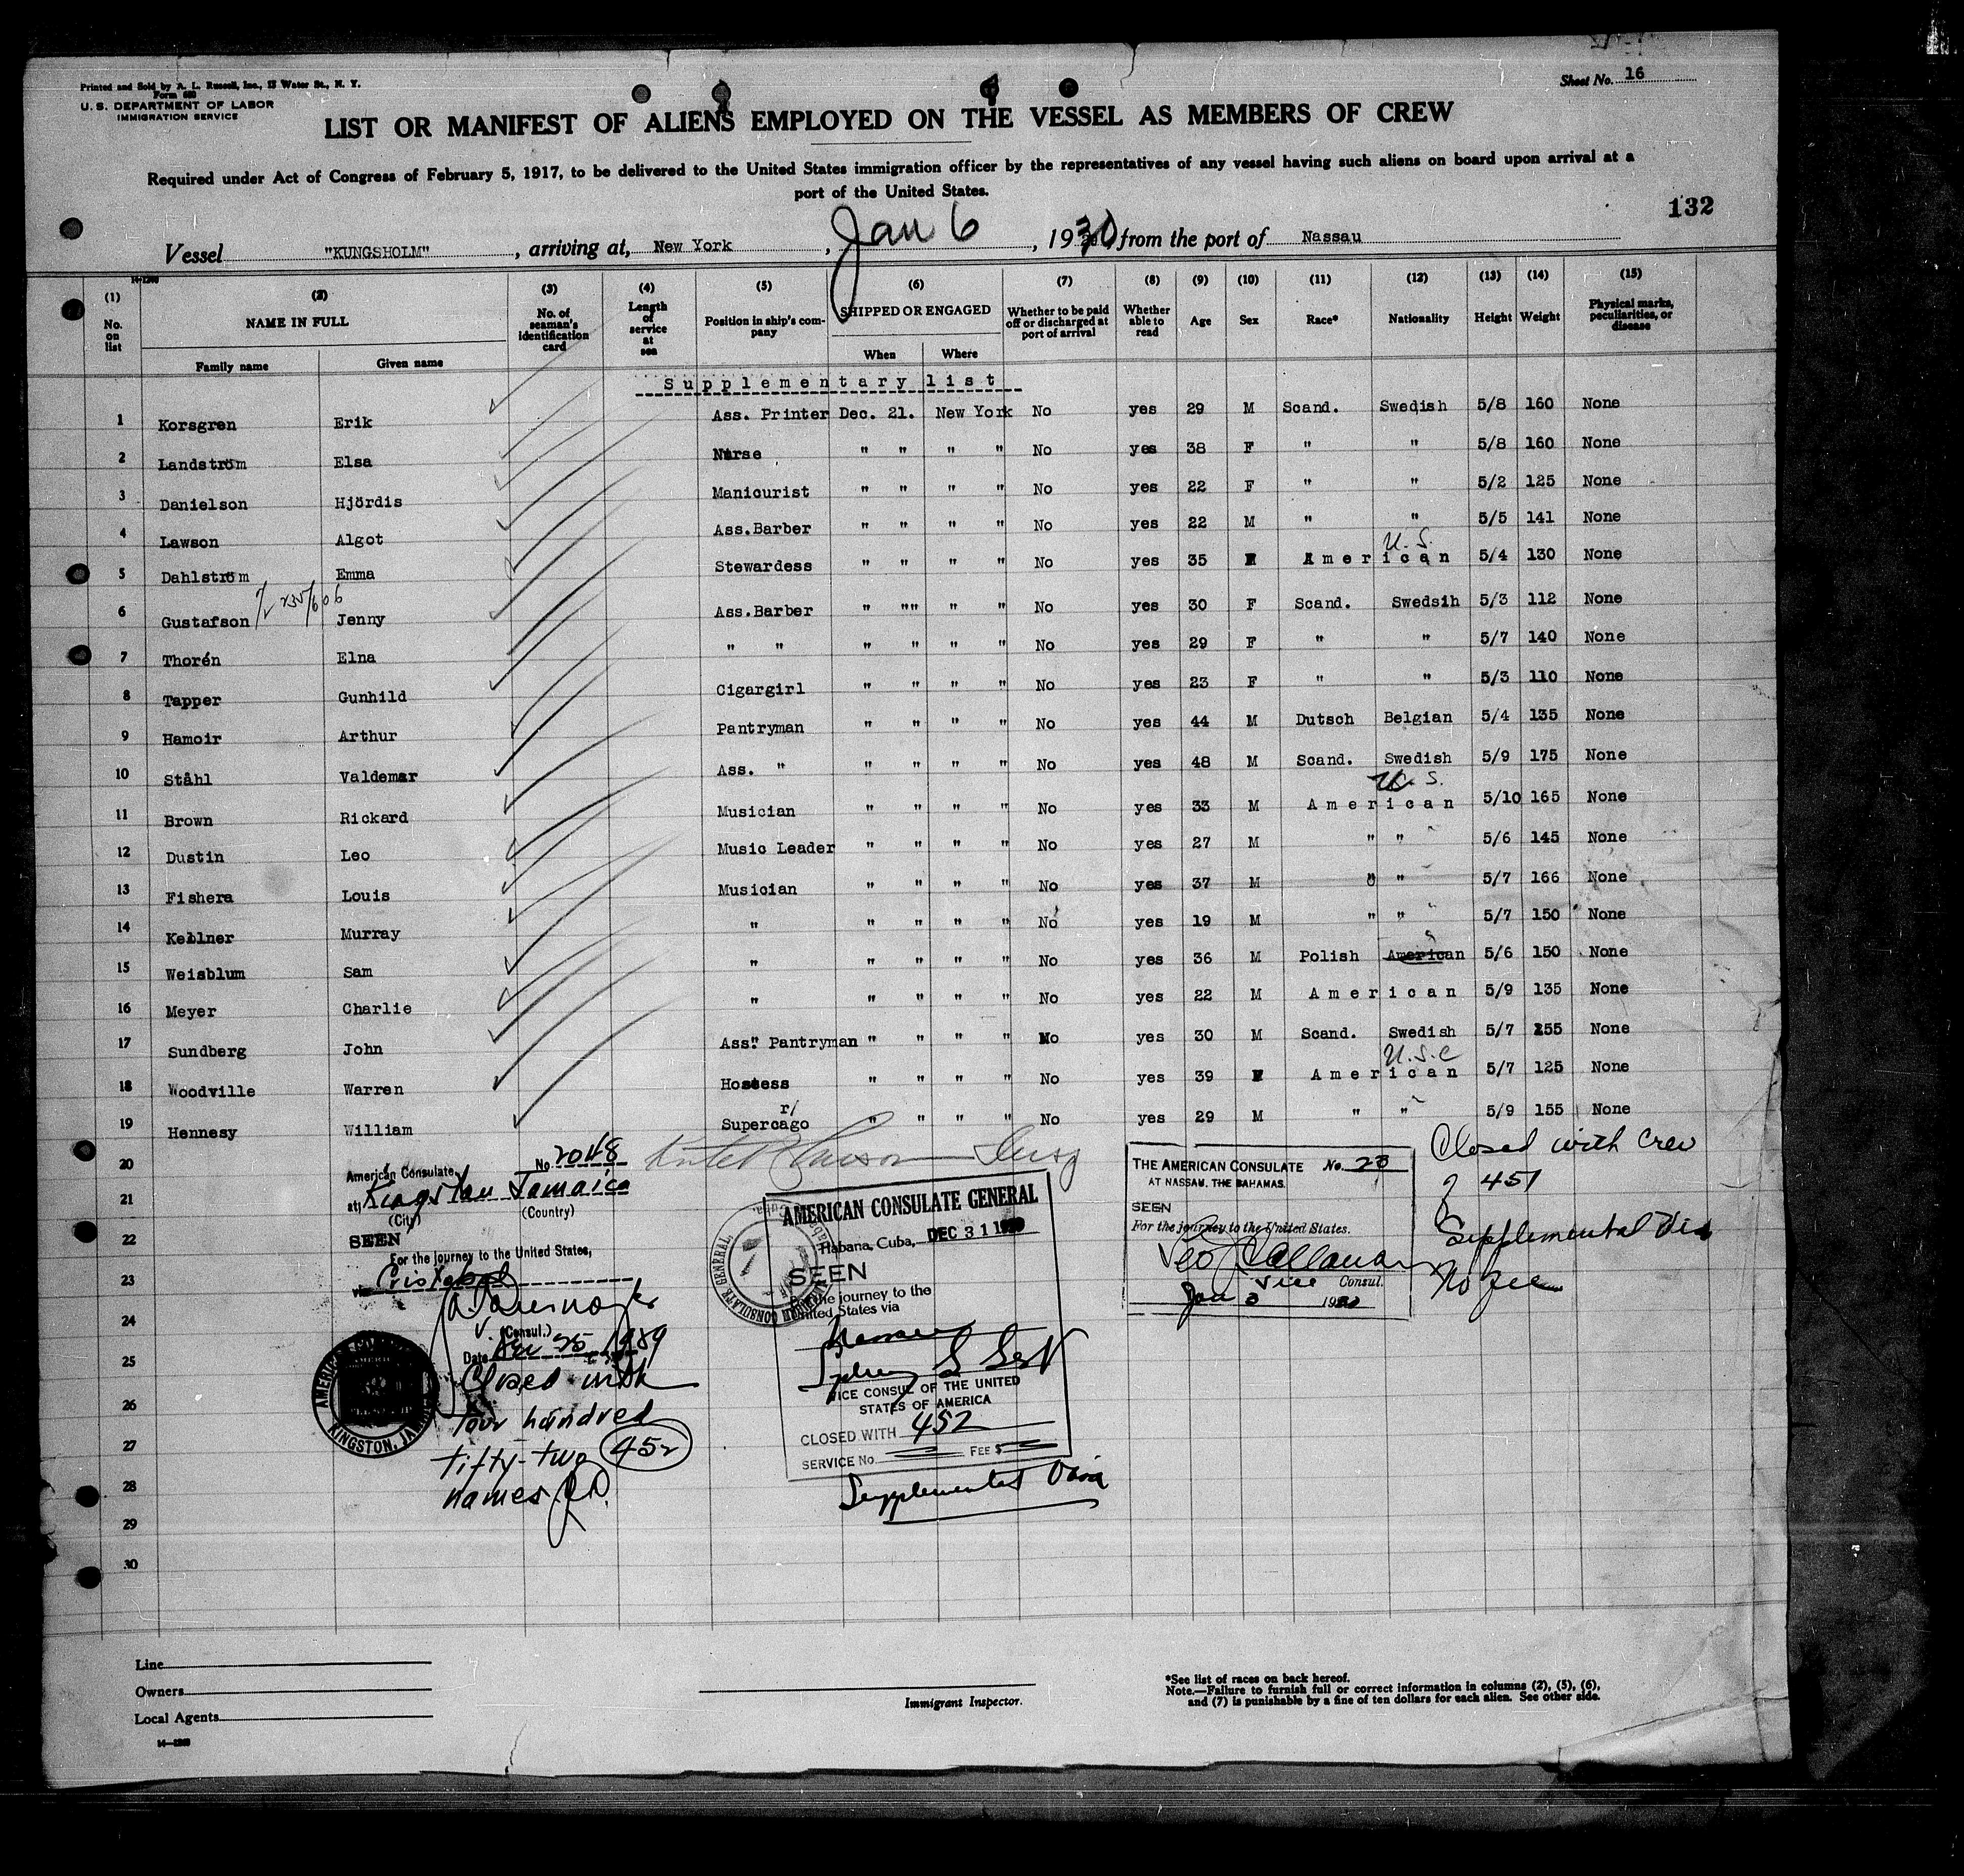 Printed and Sold by A. L. Russell, Inc., 13 Water St., N. Y.
Form 680
U. S. DEPARTMENT OF LABOR
IMMIGRATION SERVICE
Sheet No. 16
LIST OR MANIFEST OF ALIENS EMPLOYED ON THE VESSEL AS MEMBERS OF CREW
Required under Act of Congress of February 5, 1917, to be delivered to the United States immigration officer by the representatives of any vessel having such aliens on board upon arrival at a
port of the United States.
132
Vessel "KUNGSHOLM", arriving at, New York, Jan 6, 1930, from the port of Nassau
(1) No. on list
(2) NAME IN FULL Family name Given name
(3) No. of seaman's identification card
(4) Length of service at sea
(5) Position in ship's company
(6) SHIPPED OR ENGAGED When Where
(7) Whether to be paid off or discharged at port of arrival
(8) Whether able to read
(9) Age
(10) Sex
(11) Race*
(12) Nationality
(13) Height
(14) Weight
(15) Physical marks, peculiarities, or disease
Supplementary list
1 Korsgren Erik Ass. Printer Dec. 21. New York No yes 29 M Scand. Swedish 5/8 160 None
2 Landström Elsa Nurse " " " " No yes 38 F " " 5/8 160 None
3 Danielson Hjördis Manicurist " " " " No yes 22 F " " 5/2 125 None
4 Lawson Algot Ass.Barber " " " " No yes 22 M " " 5/5 141 None
U.S.
5 Dahlström Emma Stewardess " " " " No yes 35 F American 5/4 130 None
6 Gustafson Jenny Ass.Barber " "" " " No yes 30 F Scand. Swedsih 5/3 112 None
7 Thorén Elna " " " " " " No yes 29 F " " 5/7 140 None
8 Tapper Gunhild Cigargirl " " " " No yes 23 F " " 5/3 110 None
9 Hamoir Arthur Pantryman " " " " No yes 44 M Dutsch Belgian 5/4 135 None
10 Ståhl Valdemar Ass. " " " " " No yes 48 M Scand. Swedish 5/9 175 None
U.S.
11 Brown Rickard Musician " " " " No yes 33 M American 5/10 165 None
12 Dustin Leo Music Leader " " " " No yes 27 M " " 5/6 145 None
13 Fishera Louis Musician " " " " No yes 37 M " " 5/7 166 None
14 Kellner Murray " " " " " No yes 19 M " " 5/7 150 None
15 Weisblum Sam " " " " " No yes 36 M Polish American 5/6 150 None
16 Meyer Charlie " " " " " No yes 22 M American 5/9 135 None
17 Sundberg John Ass. Pantryman " " " " No yes 30 M Scand. Swedish 5/7 155 None
U.S.C
18 Woodville Warren Hostess " " " " No yes 39 F American 5/7 125 None
19 Hennesy William Supercago " " " " No yes 29 M " " 5/9 155 None
20
21
22
23
24
25
26
27
28
29
30
American Consulate, No. 2048
at Kingston Jamaica
(City) (Country)
SEEN
For the journey to the United States,
via Cristobal
V. (Consul.)
Date Dec 25 1929
Closed with
four hundred
fifty-two 452
names
AMERICAN CONSULATE GENERAL
Habana, Cuba, DEC 31 1929
SEEN
For the journey to the
United States via
Nassau
VICE CONSUL OF THE UNITED
STATES OF AMERICA
CLOSED WITH 452
SERVICE No. FEE $
Supplemental Visa
THE AMERICAN CONSULATE No. 23
AT NASSAU, THE BAHAMAS.
SEEN
For the journey to the United States.
Vice Consul.
Jan 3 1930
Closed with Crew
of 451
Supplemental Visa
No fee
Line
Owners
Local Agents
14—1240
Immigrant Inspector.
*See list of races on back hereof.
Note.—Failure to furnish full or correct information in columns (2), (5), (6),
and (7) is punishable by a fine of ten dollars for each alien. See other side.